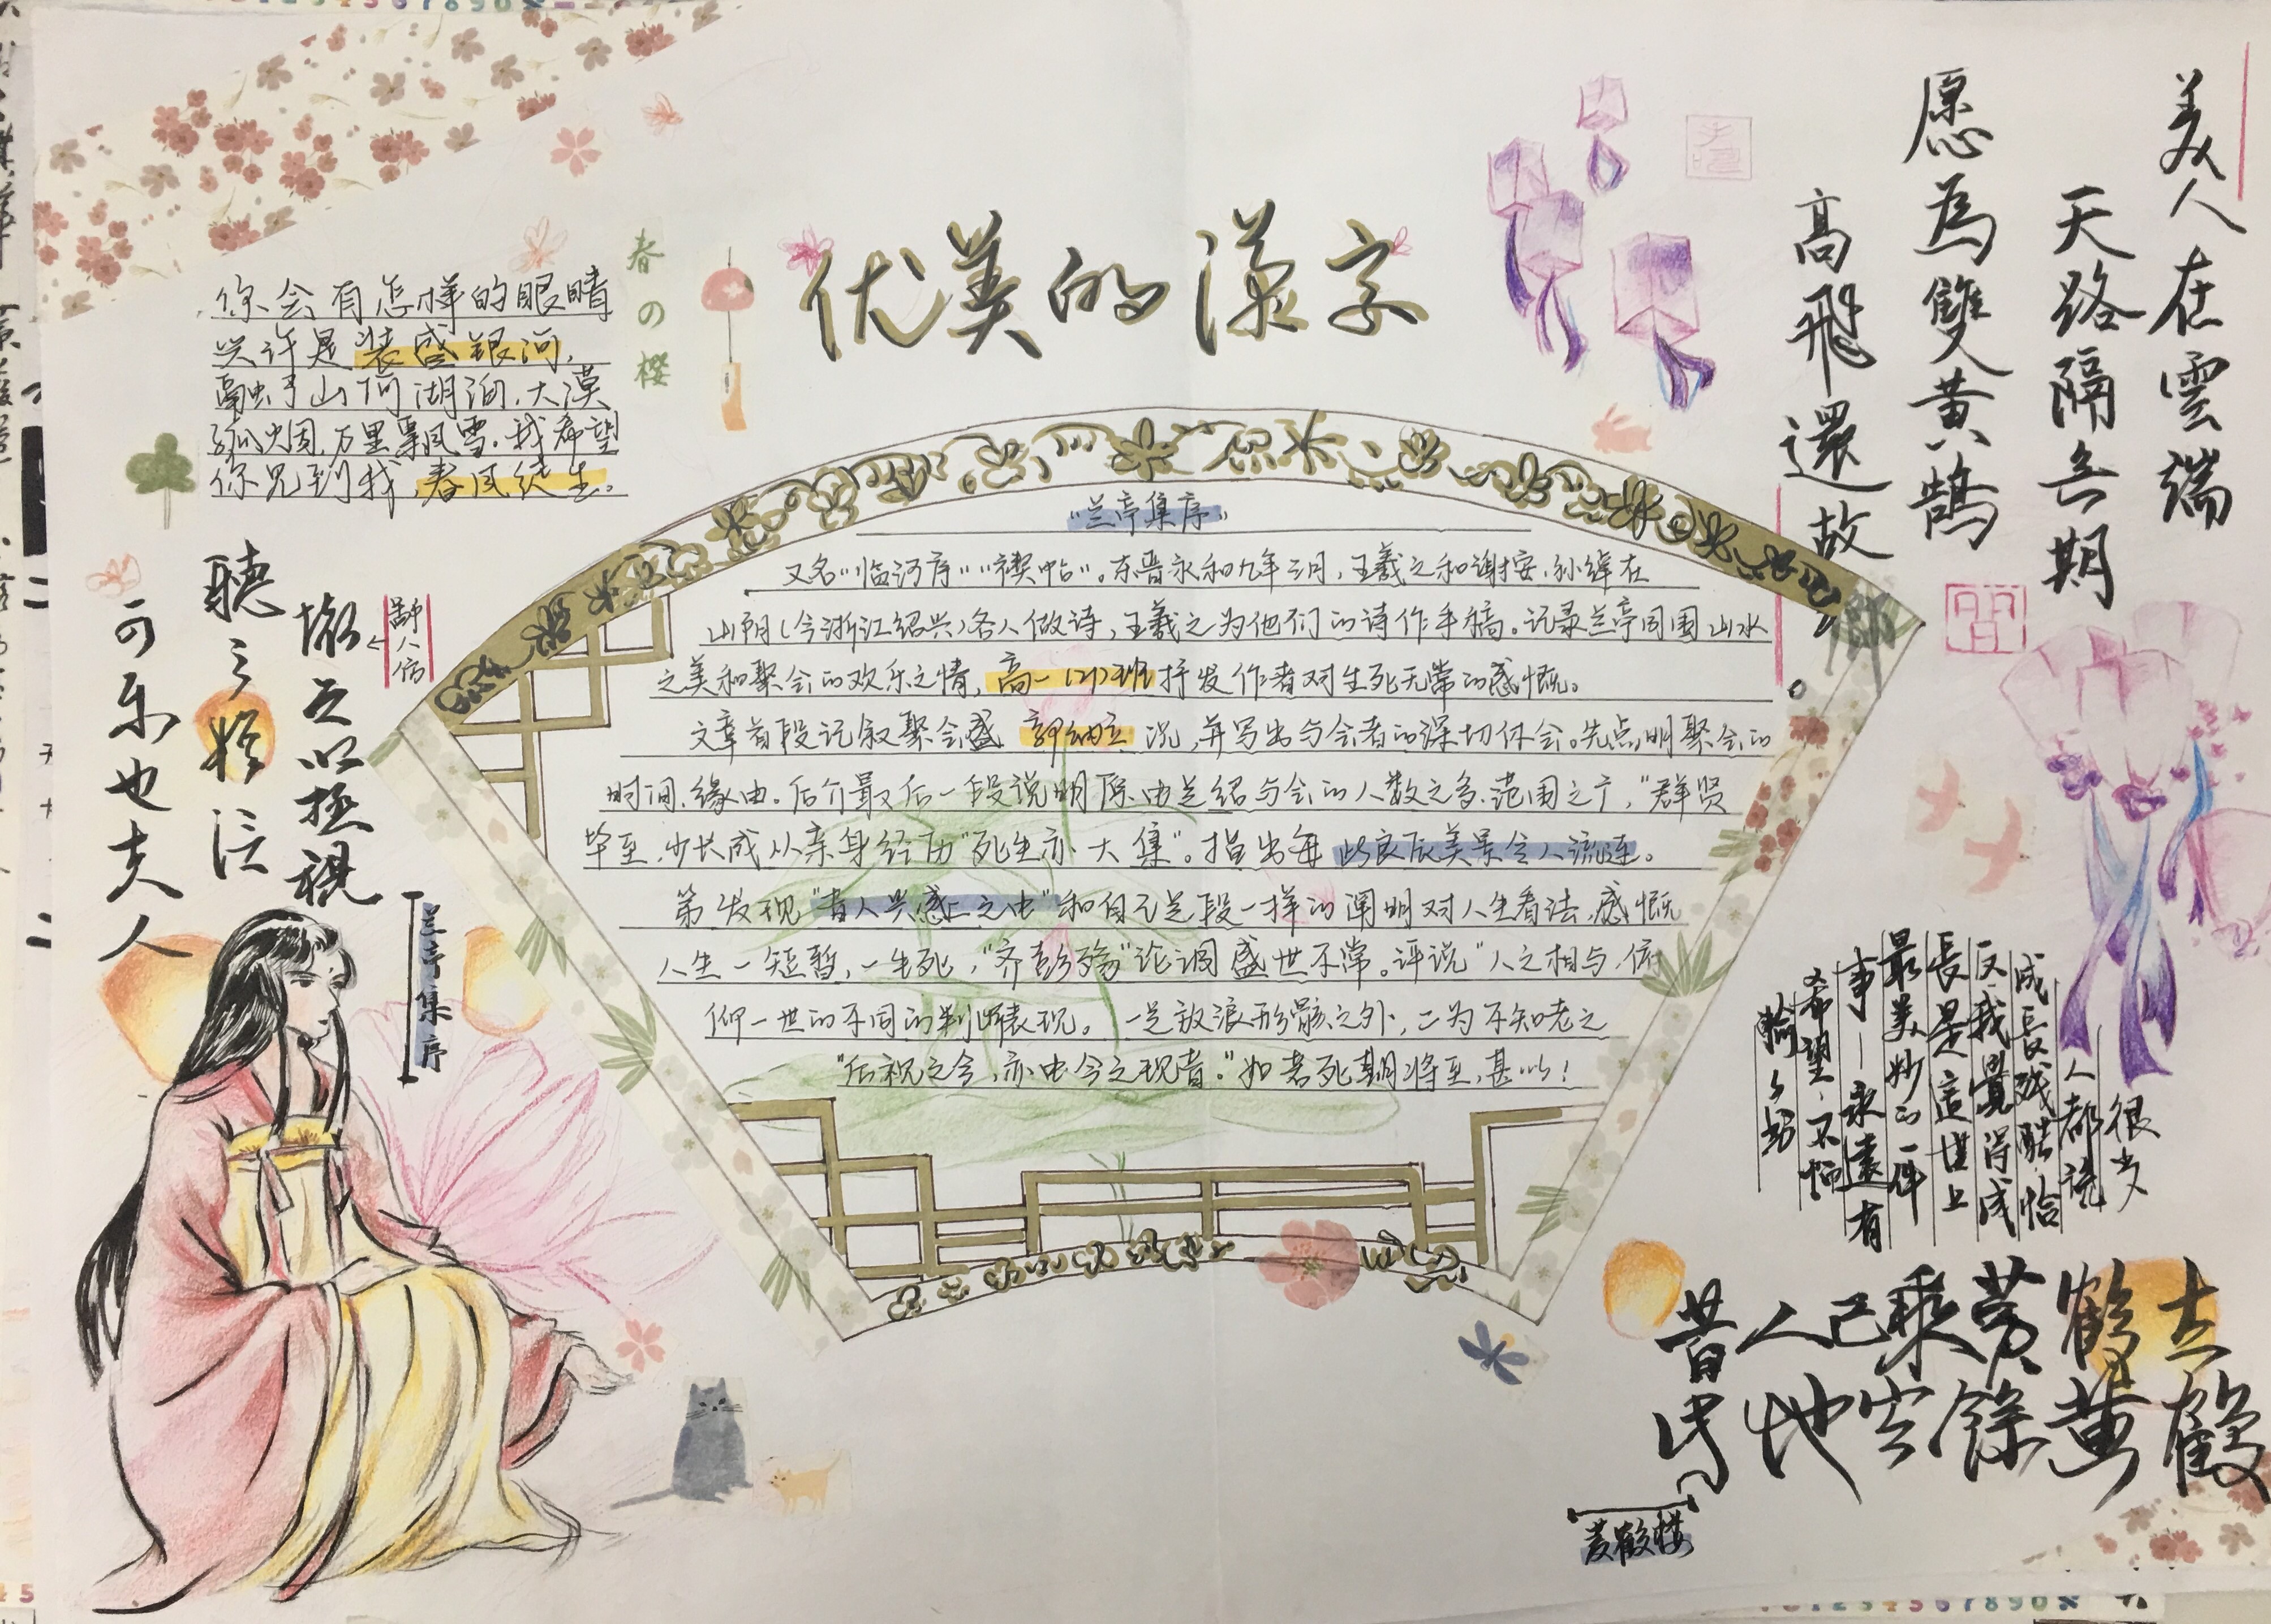 优美的漢字
春の櫻
你会有怎样的眼睛
兴许是装盛银河,
融了山河湖泊,大漠
孤烟,万里飘风雪.我希望
你见到我,春风续生。
《兰亭集序》
又名"临河序""禊帖"。东晋永和九年三月,王羲之和谢安,孙绰在
山阴(今浙江绍兴)各人做诗,王羲之为他们的诗作手稿。记录兰亭周围山水
之美和聚会的欢乐之情,高一(21)班抒发作者对生死无常的感慨。
文章首段记叙聚会盛 况,并写出与会者的深切体会。先点明聚会的
时间,缘由。后介最后一段说明原由是绍与会的人数之多,范围之广,"群贤
毕至,少长咸从亲身经历"死生亦大集"。指出每此良辰美景令人流连。
第发现"昔人兴感之由"和自己是段一样的阐明对人生看法,感慨
人生一短暂,一生死,"齐彭殇"论调盛世不常。评说"人之相与,俯
仰一世的不同的判断表现。一是放浪形骸之外,二为不知老之
"后视之今,亦由今之视昔."如若死期将至,甚以!
兰亭集序
可乐也夫人
美人在雲端
天路隔无期
愿為雙黄鵠
高飛還故鄉
很多
人都说
成長残酷,恰
反,我覺得成
長是這世上
最美妙的一件
事—永遠有
希望,不怕
昔人已乘黄鹤去
此地空餘黄鶴
黄鹤楼